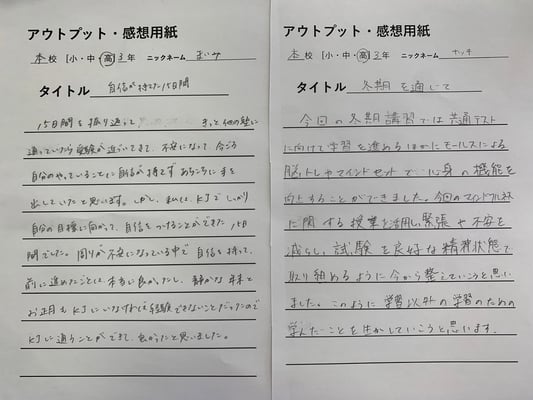 アウトプット・感想用紙
本校 [小・中・高] 3年 ニックネーム まいみ
タイトル 自信が持てた15日間
15日間を振り返って きっと他の塾に
通っていたら受験が近づいてきて、不安になって今ごろ
自分のやっていることに自信が持てず あちこちに手を
出していたと思います。しかし、私は、KJでしっかり
自分の目標に向かって、自信をつけることができた15日
間でした。周りが不安になっている中で自信を持って、
前に進めたことは本当に良かったし、静かな年末と
お正月もKJにいなければ経験できないことだったので
KJに通うことができて、良かったと思いました。
アウトプット・感想用紙
本校 [小・中・高] 3年 ニックネーム
タイトル 冬期を通じて
今回の冬期講習では共通テスト
に向けて学習を進めるほかにモールスによる
脳トレやマインドセットで 身の機能を
向上することができました。今回のマインドフルネス
に関する授業を活用し緊張や不安を
減らし、試験を良好な精神状態で
取り組めるように今から整えていこうと思い
ました。このように学習以外の学習のための
学んだことを生かしていこうと思います。